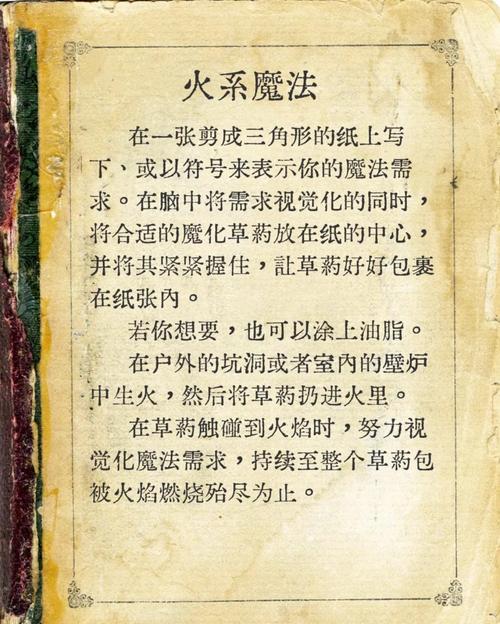 火系魔法
在一张剪成三角形的纸上写
下、或以符号来表示你的魔法需
求。在脑中将需求视觉化的同时，
将合适的魔化草葯放在纸的中心，
并将其紧紧握住，訨草葯好好包裹
在纸张內。
若你想要，也可以涂上油脂。
在户外的坑洞或者室內的壁炉
中生火，然后将草葯扔进火里。
在草葯触碰到火焰时，努力视
觉化魔法需求，持续至整个草葯包
被火焰燃烧殆尽为止。